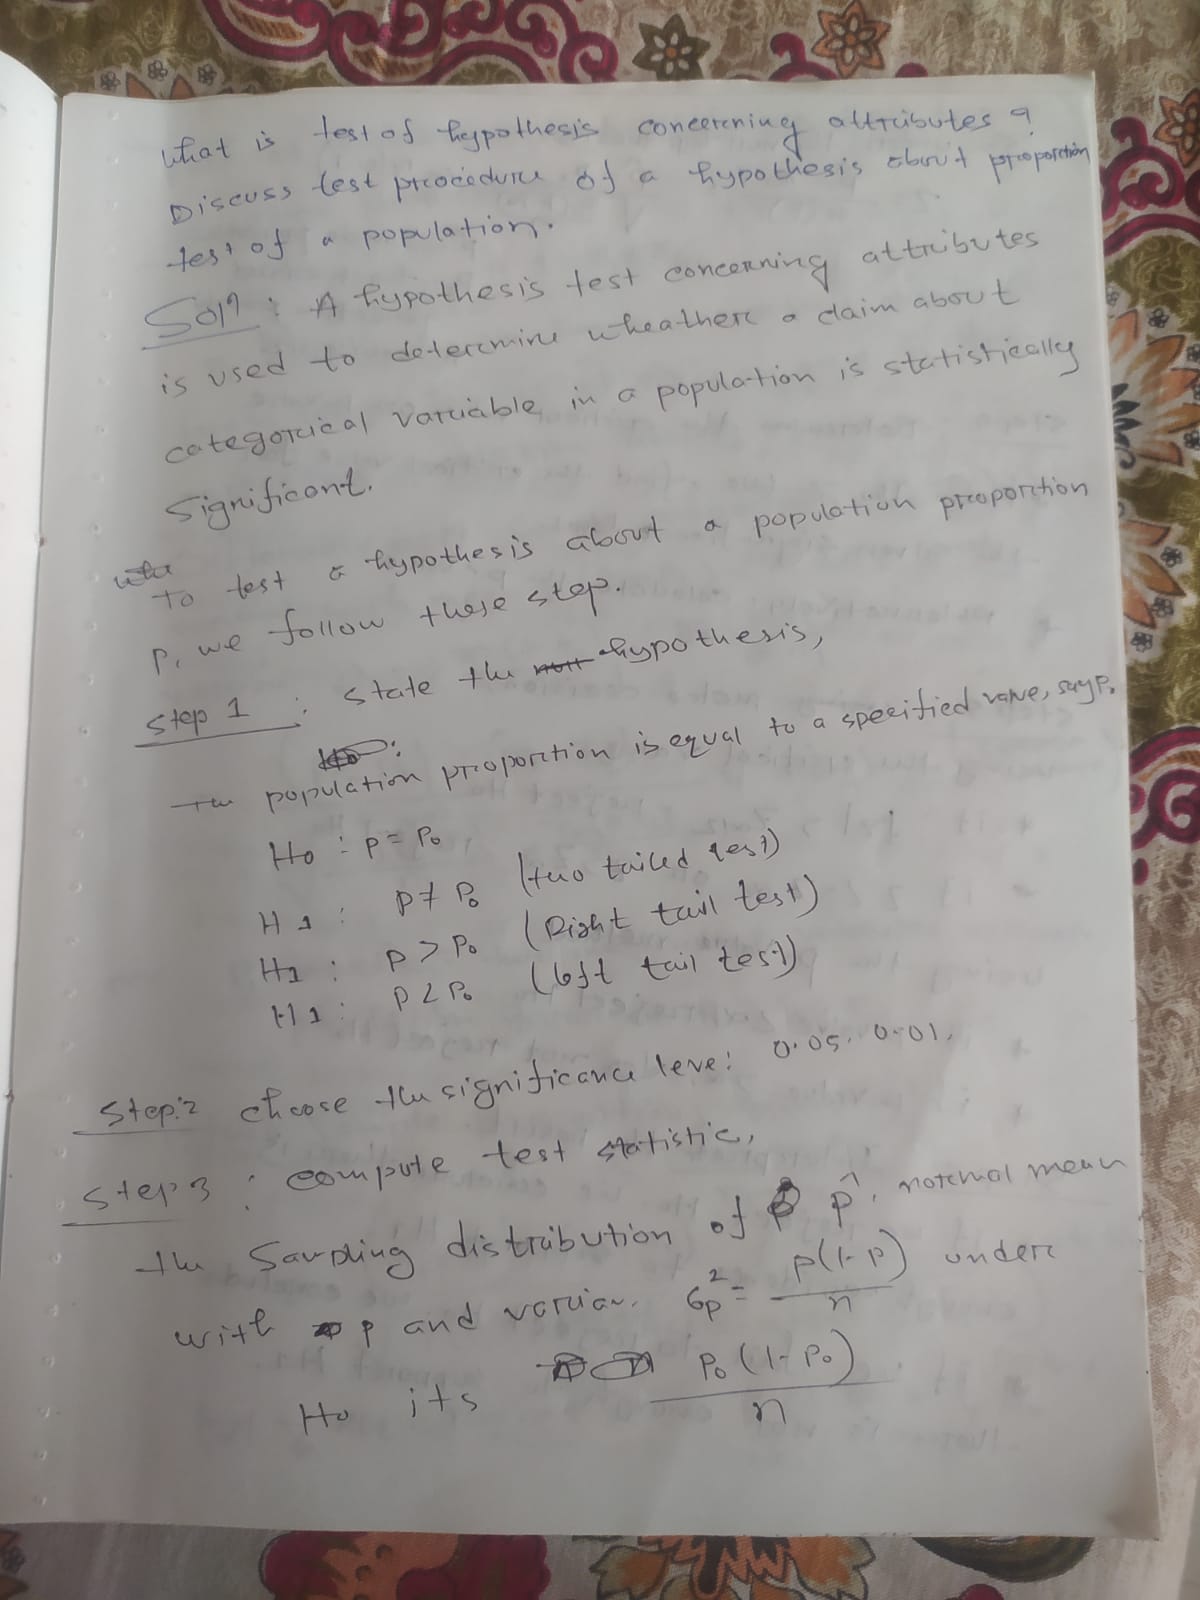 What is test of hypothesis concerening attributes ?
Discuss test procedure of a hypothesis about proportion
test of a population.
Soln : A hypothesis test concerning attributes
is used to determine wheather a claim about
categorical variable in a population is statistically
significant.
To test a hypothesis about a population proportion
P, we follow these step.
Step 1 : state the hypothesis,
The population proportion is equal to a specified value, say P₀
H₀ : P = P₀
H1 : P ≠ P₀ (two tailed test)
H1 : P > P₀ (Right tail test)
H1 : P < P₀ (left tail test)
Step:2 choose the significance leve: 0.05, 0.01.
Step 3 : compute test statistic,
the Sampling distribution of p̂, normal mean
with p and varian. σp² = p(1-p)/n under
H₀ its P₀(1-P₀)/n